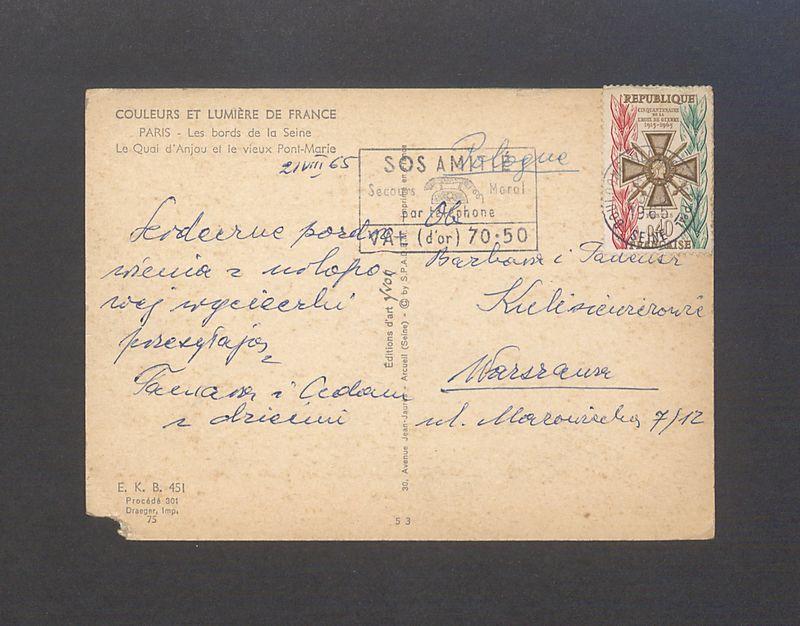 COULEURS ET LUMIÈRE DE FRANCE
PARIS - Les bords de la Seine
Le Quai d'Anjou et le vieux Pont-Marie
21 VIII 65
Serdeczne pozdro
wienia z urlopo
wej wycieczki
przesyłają
i Adam
z dziećmi
E. K. B. 451
Procédé 301
Draeger, Imp.
75
53
30, Avenue Jean-Jaurès - Arcueil (Seine) - © by S.P.A.D.E.M.
Éditions d'art YVON
SOS AMITIÉ
Secours Moral
par téléphone
VAL (d'or) 70-50
Pologne
RÉPUBLIQUE
CINQUANTENAIRE
DE LA
CROIX DE GUERRE
1915-1965
1965
SEINE
FRANÇAISE
Ob.
Barbara i Tadeusz
Kulisiewiczowie
Warszawa
ul. 7/12